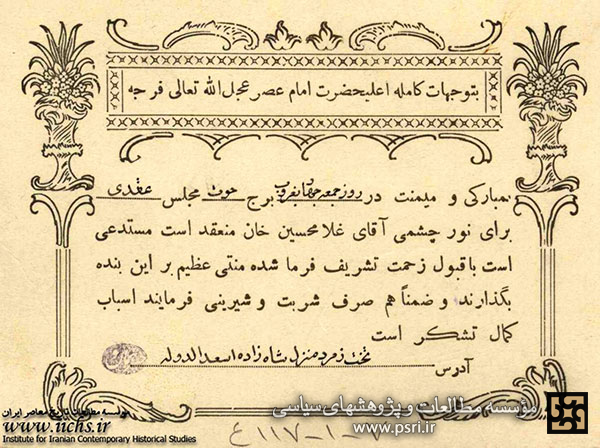 بتوجهات کامله اعلیحضرت امام عصر عجل الله تعالی فرجه
بمبارکی و میمنت در روز جمعه برج حوت مجلس عقدی
برای نور چشمی آقای غلامحسین خان منعقد است مستدعی
است با قبول زحمت تشریف فرما شده منتی عظیم بر این بنده
بگذارند و ضمناً هم صرف شربت و شیرینی فرمایند اسباب
کمال تشکر است
آدرس تخت زمرد منزل شاه زاده اسعد الدوله
مؤسسه مطالعات و پژوهشهای سیاسی
www.psri.ir
مؤسسه مطالعات تاریخ معاصر ایران
www.iichs.ir
Institute for Iranian Contemporary Historical Studies